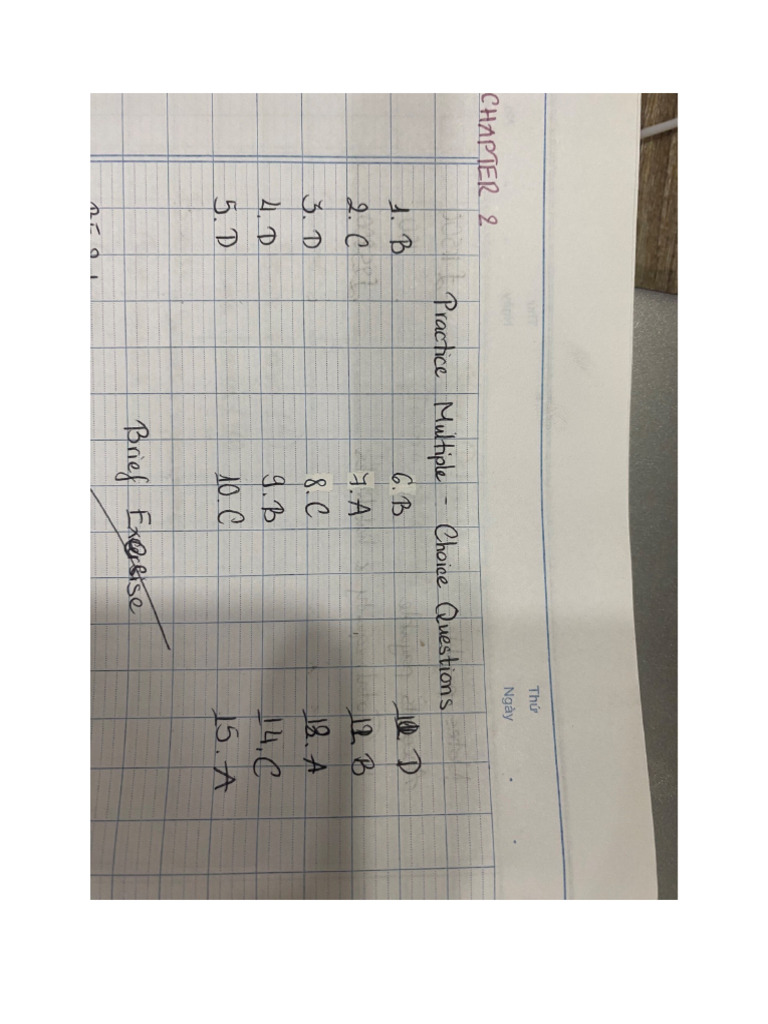 Thứ
Ngày
CHAPTER 2
Practice Multiple - Choice Questions
1. B 6. B 11. D
2. C 7. A 12. B
3. D 8. C 13. A
4. D 9. B 14. C
5. D 10. C 15. A
Brief Exersise